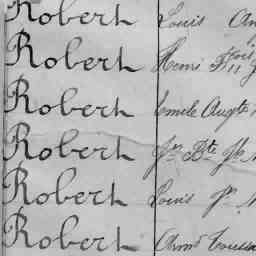 Robert Louis
Robert Henri Fçois
Robert Emile Augte
Robert Jn Bte
Robert Louis
Robert Armd